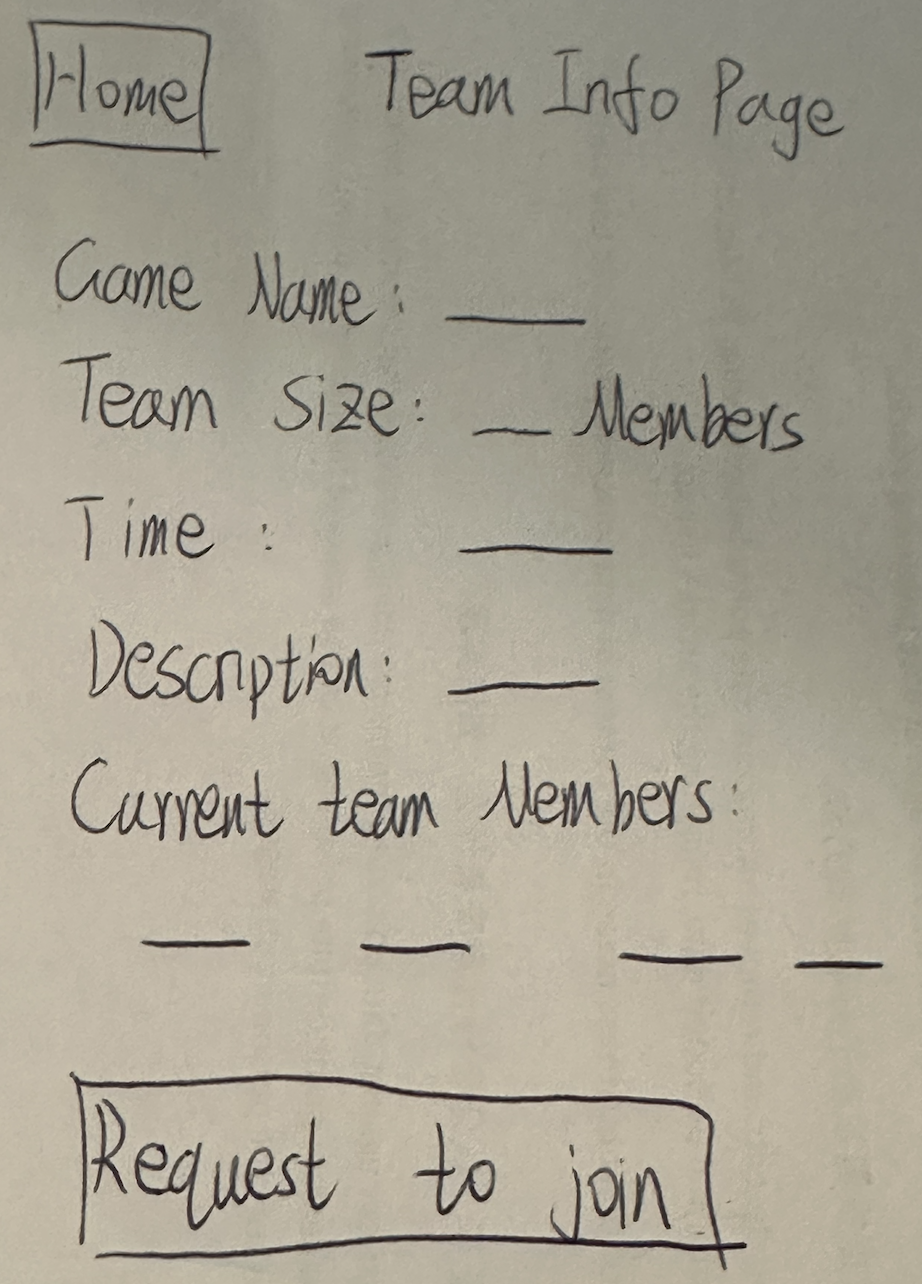 Home Team Info Page
Game Name: ___
Team Size: __ Members
Time : ___
Description: ___
Current team Members:
___ ___ ___ ___
Request to join